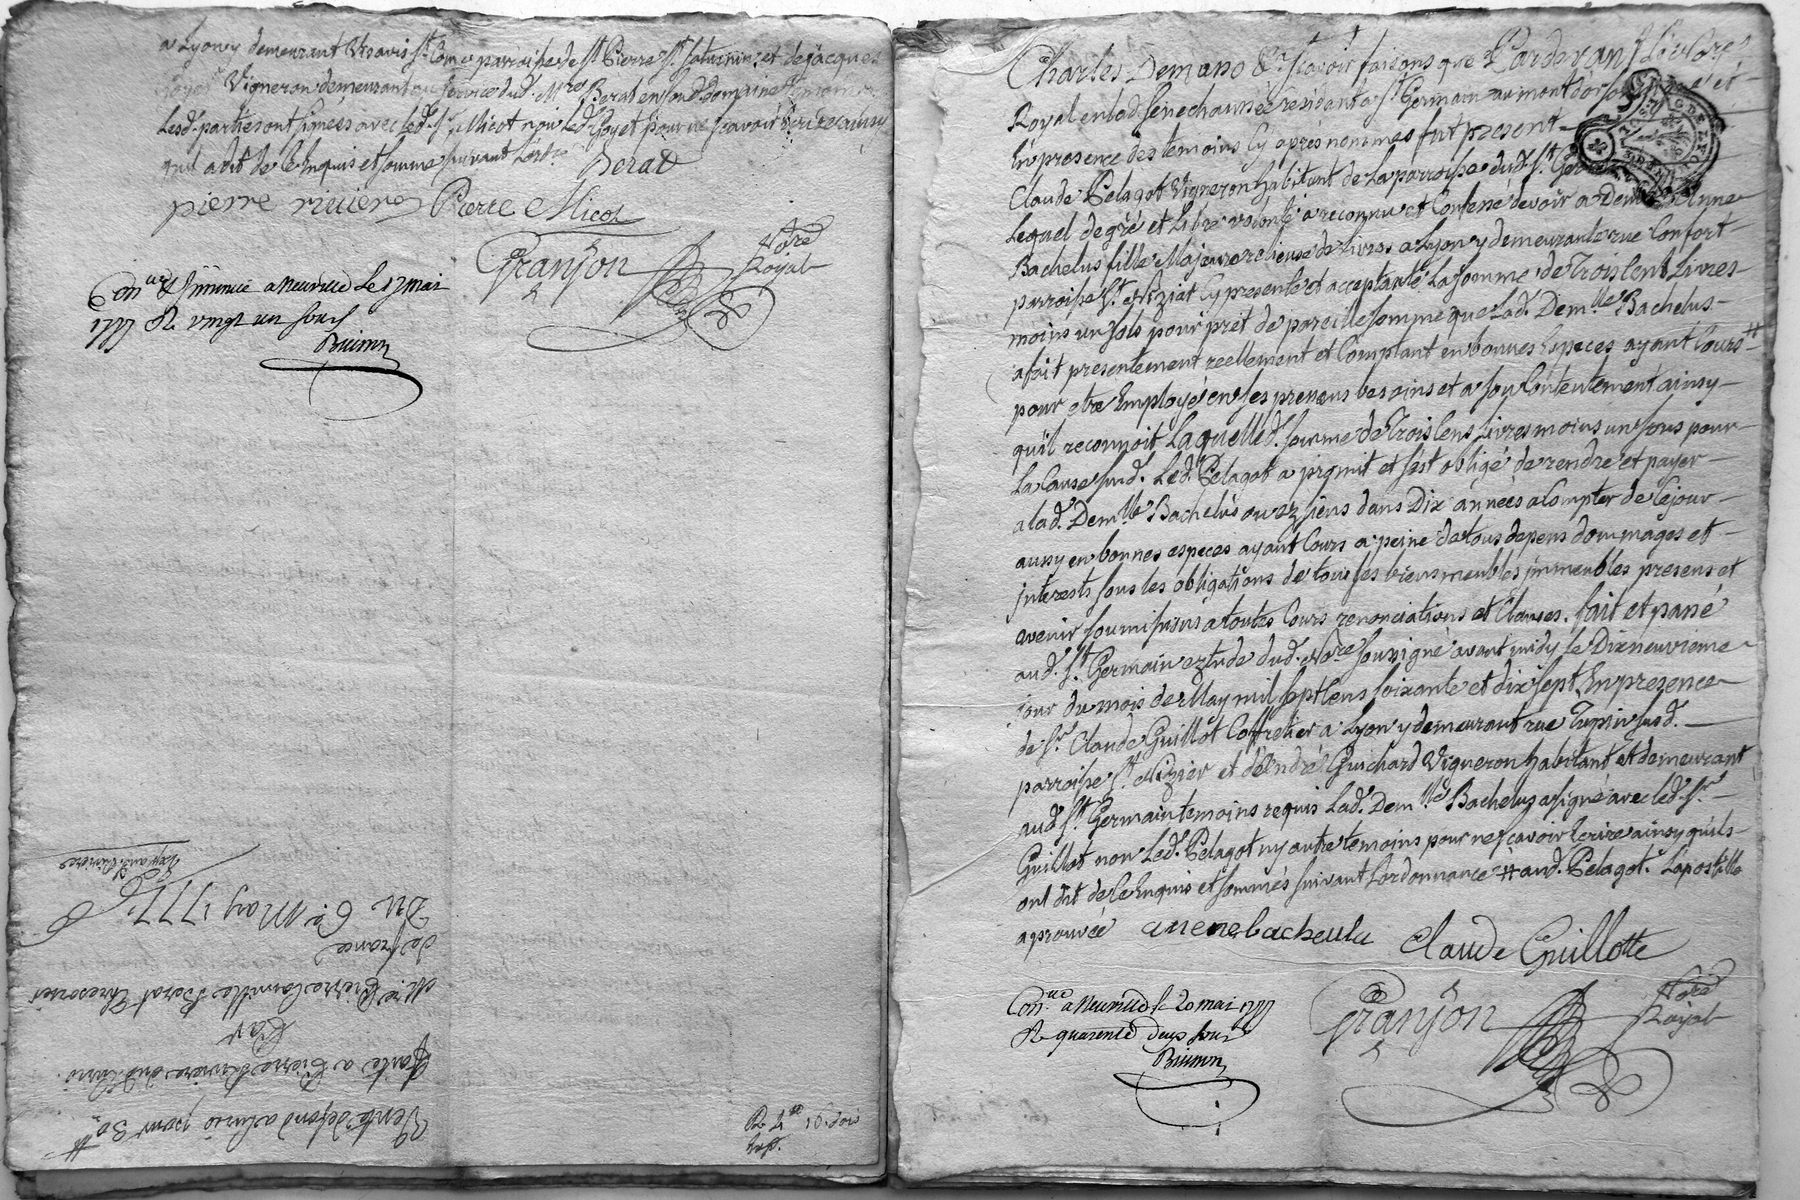 a Lyon y demeurant visavis St. Come parroisse de St. Pierre St. Saturnin; et de jacques
Vigneron demeurant au service dud. Mre. Berat en sond. domaine
Lesd. parties ont signées avec led. Sr. Micot non led. Goyet pour ne scavoir écrire ainsy
quil a dit de ce Enquis et sommé suivant Lord.ce Berat
pierre riviere Pierre Micol
Granjon Nore Royal
Con.lé & insinué a Neuville le 17 mai
1777 R. vingt un sous
Buisson
Vente de fond a Curis pour 30 ₶
faite a Pierre Riviere dud. Curis
Par
Mre. Pierre Camille Berat thresorier
de france
Du 6e. May 1777.
Expand. Riviere
R. 1 16 sols
Exp.
Charles Demano &. scavoir faisons que Pardevant Le Nore.
Royal en lad. senechaussée residant a St. Germain au mont d'or soussigné et
En presence des temoins Cy aprés nommés fut present
Claude Pelagot Vigneron habitant de La parroisse dud. St. Ger
Lequel de gré et Libre volonté a reconnu et Confessé devoir a Demlle Anne
Bachelus fille Majeure relieuse de Livres a Lyon y demeurante rue Confort
parroise St. Niziet Cy presente et acceptante La somme de Trois Cent Livres
moins un sols pour prêt de pareille somme que Lad. Demlle. Bachelus
a fait presentement reellement et Comptant en bonnes Especes ayant Cours #
pour etre Employé en ses prenens besoins et a son Contentement ainsy
qu'il reconnoit Laquelle d. somme de Trois Cens Livres moins un sous pour
La Cause susd. Led. Pelagot a promit et s'est obligé de rendre et payer
a lad. Demlle Bachelus ou ez siens dans Dix années a Compter de Ce jour
aussy en bonnes especes ayant Cours a peine de tous depens dommages et
interests sous les obligations de tous ses biens meubles immeubles presens et
avenir soumissions a toutes Cours renonciations et Clauses. fait et passé
aud. St. Germain eztude dud. Nore soussigné avant midy le Dixneuvieme
jour du mois de May mil sept Cens soixante et dix sept En presence
de Sr. Claude Guillot Coffretier a Lyon y demeurant rue Tupin susd.
parroisse St. Nizier et d'André Guichard Vigneron habitant et demeurant
aud. St. Germain temoins requis Lad. Demlle Bacheluz a signé avec led. Sr.
Guillot non Led. Pelagot ny autre temoins pour ne scavoir Ecrire ainsy qu'ils
ont dit de Ce Enquis et sommés suivant Lordonnance # aud. Pelagot. Lapostille
aprouvée anene bacheulu Claude Guillotte
Granjon Nore Royal
Con.lé a Neuville le 20 mai 1777
R. quarente deux sous
Buisson